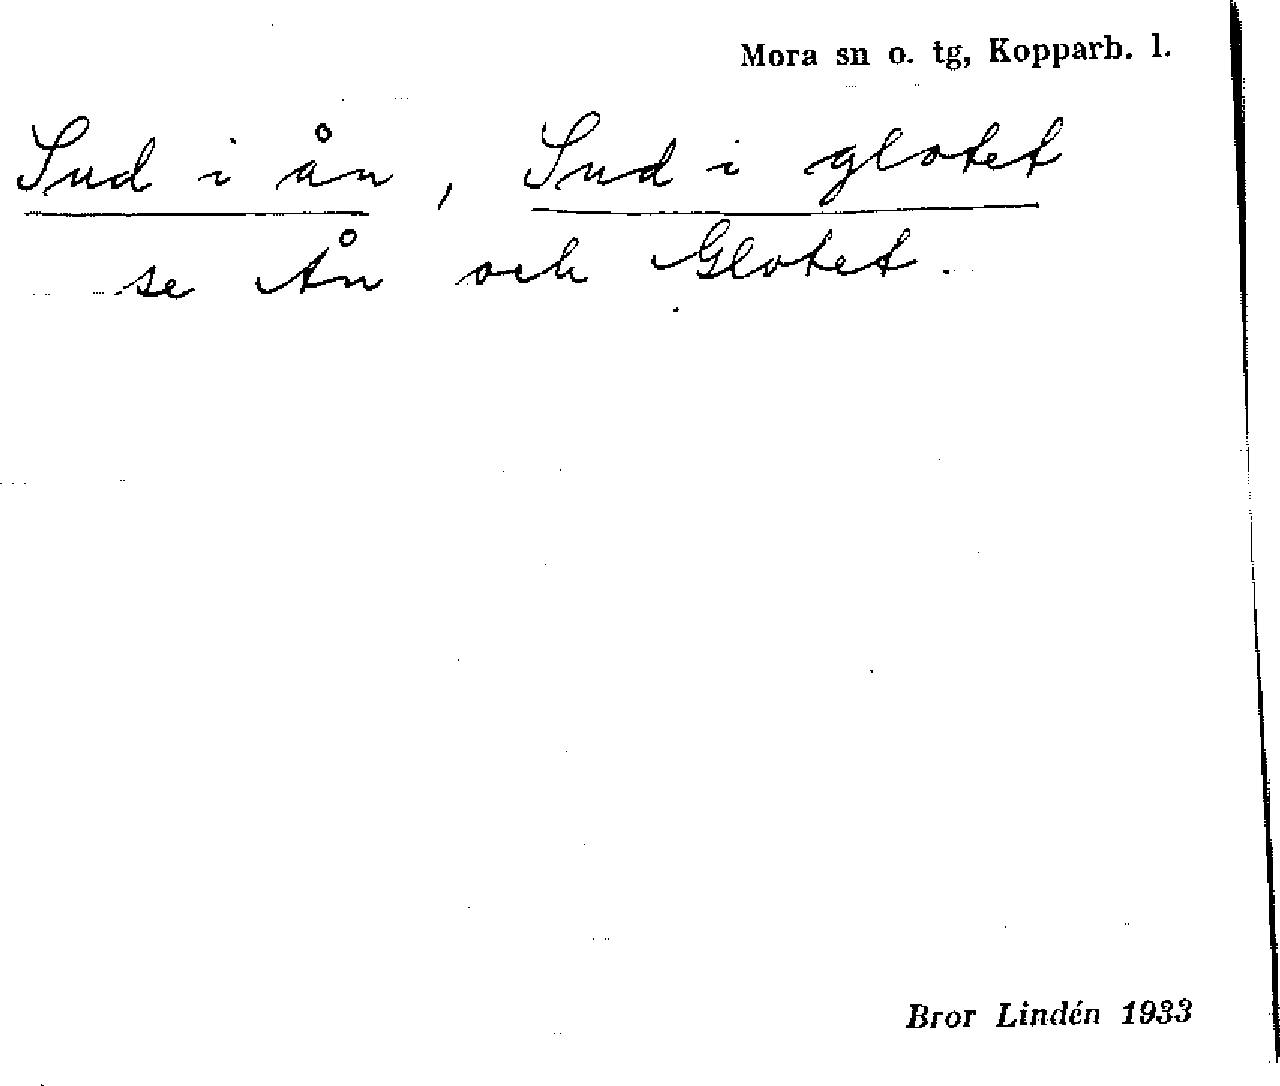 Mora sn o. tg, Kopparb. l.
Sud i ån, Sud i glotet
se Ån och Glotet.
Bror Lindén 1933